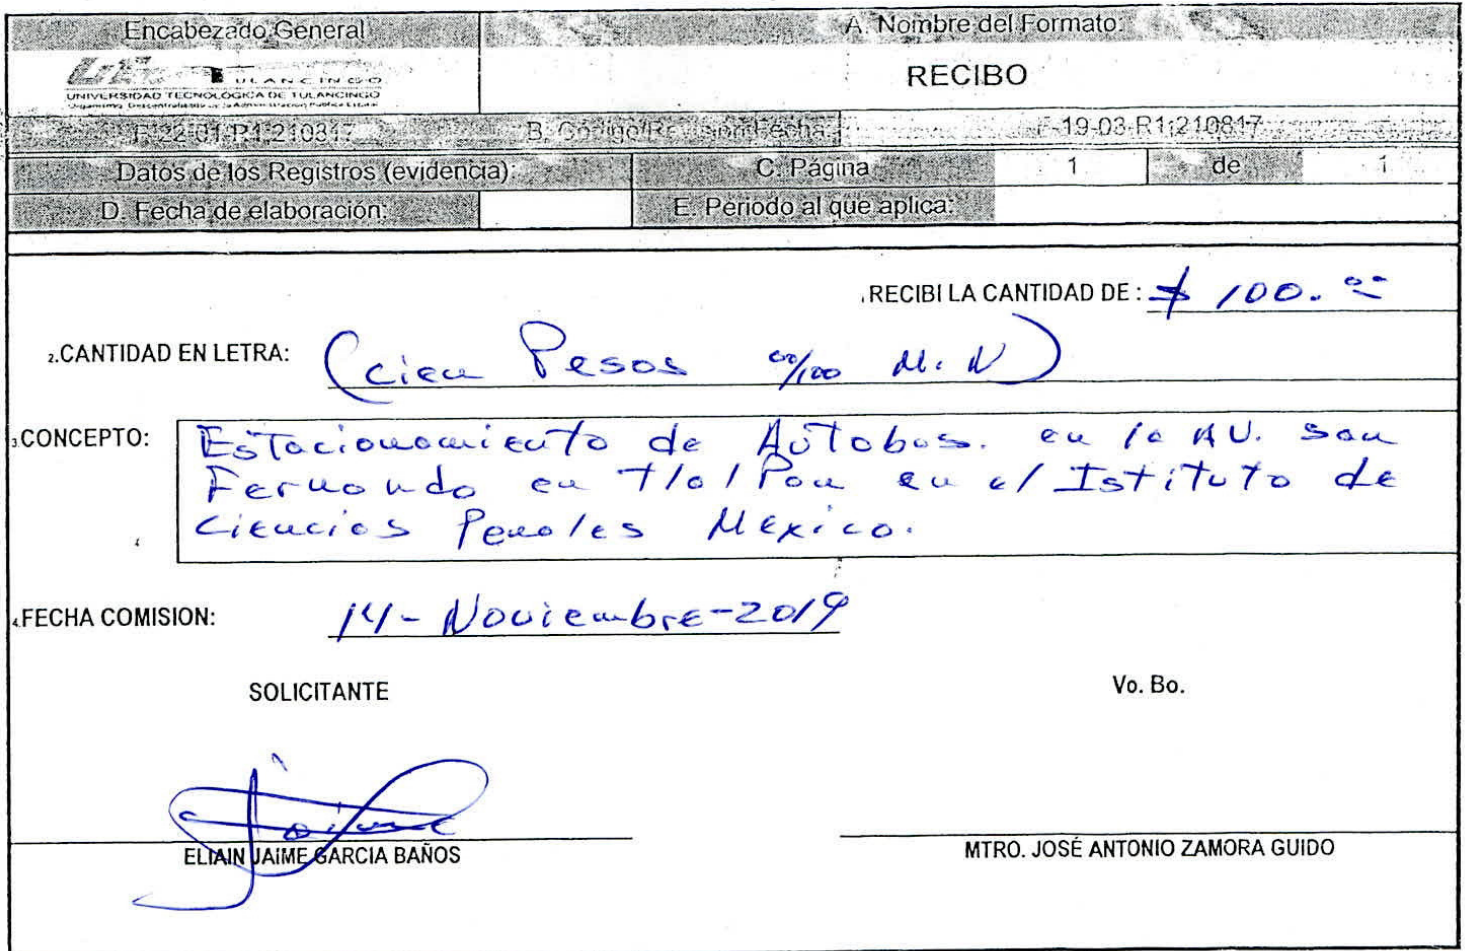 Encabezado General
A. Nombre del Formato:
ULANCINGO
UNIVERSIDAD TECNOLÓGICA DE TULANCINGO
RECIBO
F-22-01-R1-210817
B. Código/Revisión/Fecha:
F-19-03-R1;210817
Datos de los Registros (evidencia):
C. Página
1
de
1
D. Fecha de elaboración:
E. Periodo al que aplica:
RECIBI LA CANTIDAD DE : $ 100.00
2.CANTIDAD EN LETRA: (cien Pesos 00/100 M.N)
3.CONCEPTO: Estacionamiento de Autobus. en la AV. San
Fernando en Tlalpan en el Istituto de
Ciencias Penales Mexico.
4.FECHA COMISION: 14-Noviembre-2019
SOLICITANTE
Vo. Bo.
Jaime
ELIAIN JAIME GARCIA BAÑOS
MTRO. JOSÉ ANTONIO ZAMORA GUIDO